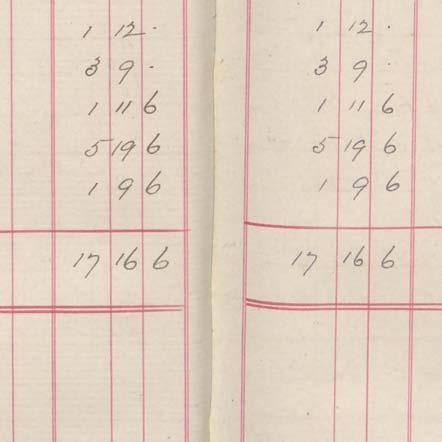 1 12 · 1 12 ·
3 9 · 3 9 ·
1 11 6 1 11 6
5 19 6 5 19 6
1 9 6 1 9 6
17 16 6 17 16 6